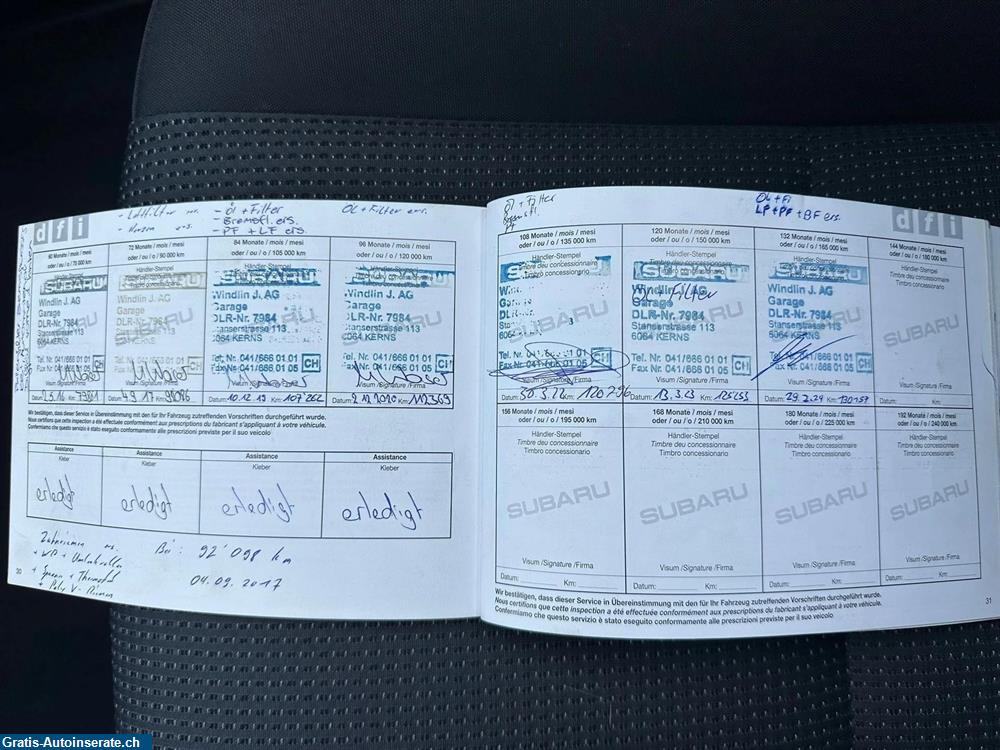 dfi
- Luftfilter ers.
- Öl + Filter
- Bremsfl. ers.
- PF + LF ers.
Öl + Filter ers.
60 Monate / mois / mesi
oder / ou / o / 75 000 km
72 Monate / mois / mesi
oder / ou / o / 90 000 km
84 Monate / mois / mesi
oder / ou / o / 105 000 km
96 Monate / mois / mesi
oder / ou / o / 120 000 km
Händler-Stempel
SUBARU
Windlin J. AG
Garage
DLR-Nr. 7984
Stanserstrasse 113
6064 KERNS
Tel. Nr. 041/666 01 01
Fax Nr. 041/666 01 05
CH
Visum/Signature/Firma
Datum: 4.9.17 Km:
Datum: 10.12.19 Km: 107262
Datum: 2.12.2020 Km: 112369
Wir bestätigen, dass dieser Service in Übereinstimmung mit den für Ihr Fahrzeug zutreffenden Vorschriften durchgeführt wurde.
Nous certifions que cette inspection a été effectuée conformément aux prescriptions du fabricant s'appliquant à votre véhicule.
Confermiamo che questo servizio è stato eseguito conformamente alle prescrizioni previste per il suo veicolo
Assistance
Kleber
erledigt
Assistance
Kleber
erledigt
Assistance
Kleber
erledigt
Assistance
Kleber
erledigt
Zahnriemen ers.
+ WP + Umlenkrollen
+ Poly V-Riemen
Bei: 92'098 km
04.09.2017
30
Öl + Filter
Bremsfl.
Öl + Fi
LP + PF + BF ers.
dfi
108 Monate / mois / mesi
oder / ou / o / 135 000 km
120 Monate / mois / mesi
oder / ou / o / 150 000 km
132 Monate / mois / mesi
oder / ou / o / 165 000 km
144 Monate / mois / mesi
oder / ou / o / 180 000 km
Händler-Stempel
Timbre du concessionnaire
Timbro concessionario
SUBARU
Windlin J. AG
Garage
DLR-Nr. 7984
Stanserstrasse 113
6064 KERNS
Tel. Nr. 041/666 01 01
Fax Nr. 041/666 01 05
CH
Filter
Visum /Signature /Firma
Datum: 30.3.22 Km: 120296
Datum: 13.3.23 Km: 125253
Datum: 29.2.24 Km:
Datum: Km:
156 Monate / mois / mesi
oder / ou / o / 195 000 km
168 Monate / mois / mesi
oder / ou / o / 210 000 km
180 Monate / mois / mesi
oder / ou / o / 225 000 km
192 Monate / mois / mesi
oder / ou / o / 240 000 km
Händler-Stempel
Timbre du concessionnaire
Timbro concessionario
SUBARU
SUBARU
SUBARU
SUBARU
Visum /Signature /Firma
Datum: Km:
Datum: Km:
Datum: Km:
Datum: Km:
Wir bestätigen, dass dieser Service in Übereinstimmung mit den für Ihr Fahrzeug zutreffenden Vorschriften durchgeführt wurde.
Nous certifions que cette inspection a été effectuée conformément aux prescriptions du fabricant s'appliquant à votre véhicule.
Confermiamo che questo servizio è stato eseguito conformamente alle prescrizioni previste per il suo veicolo
31
Gratis-Autoinserate.ch